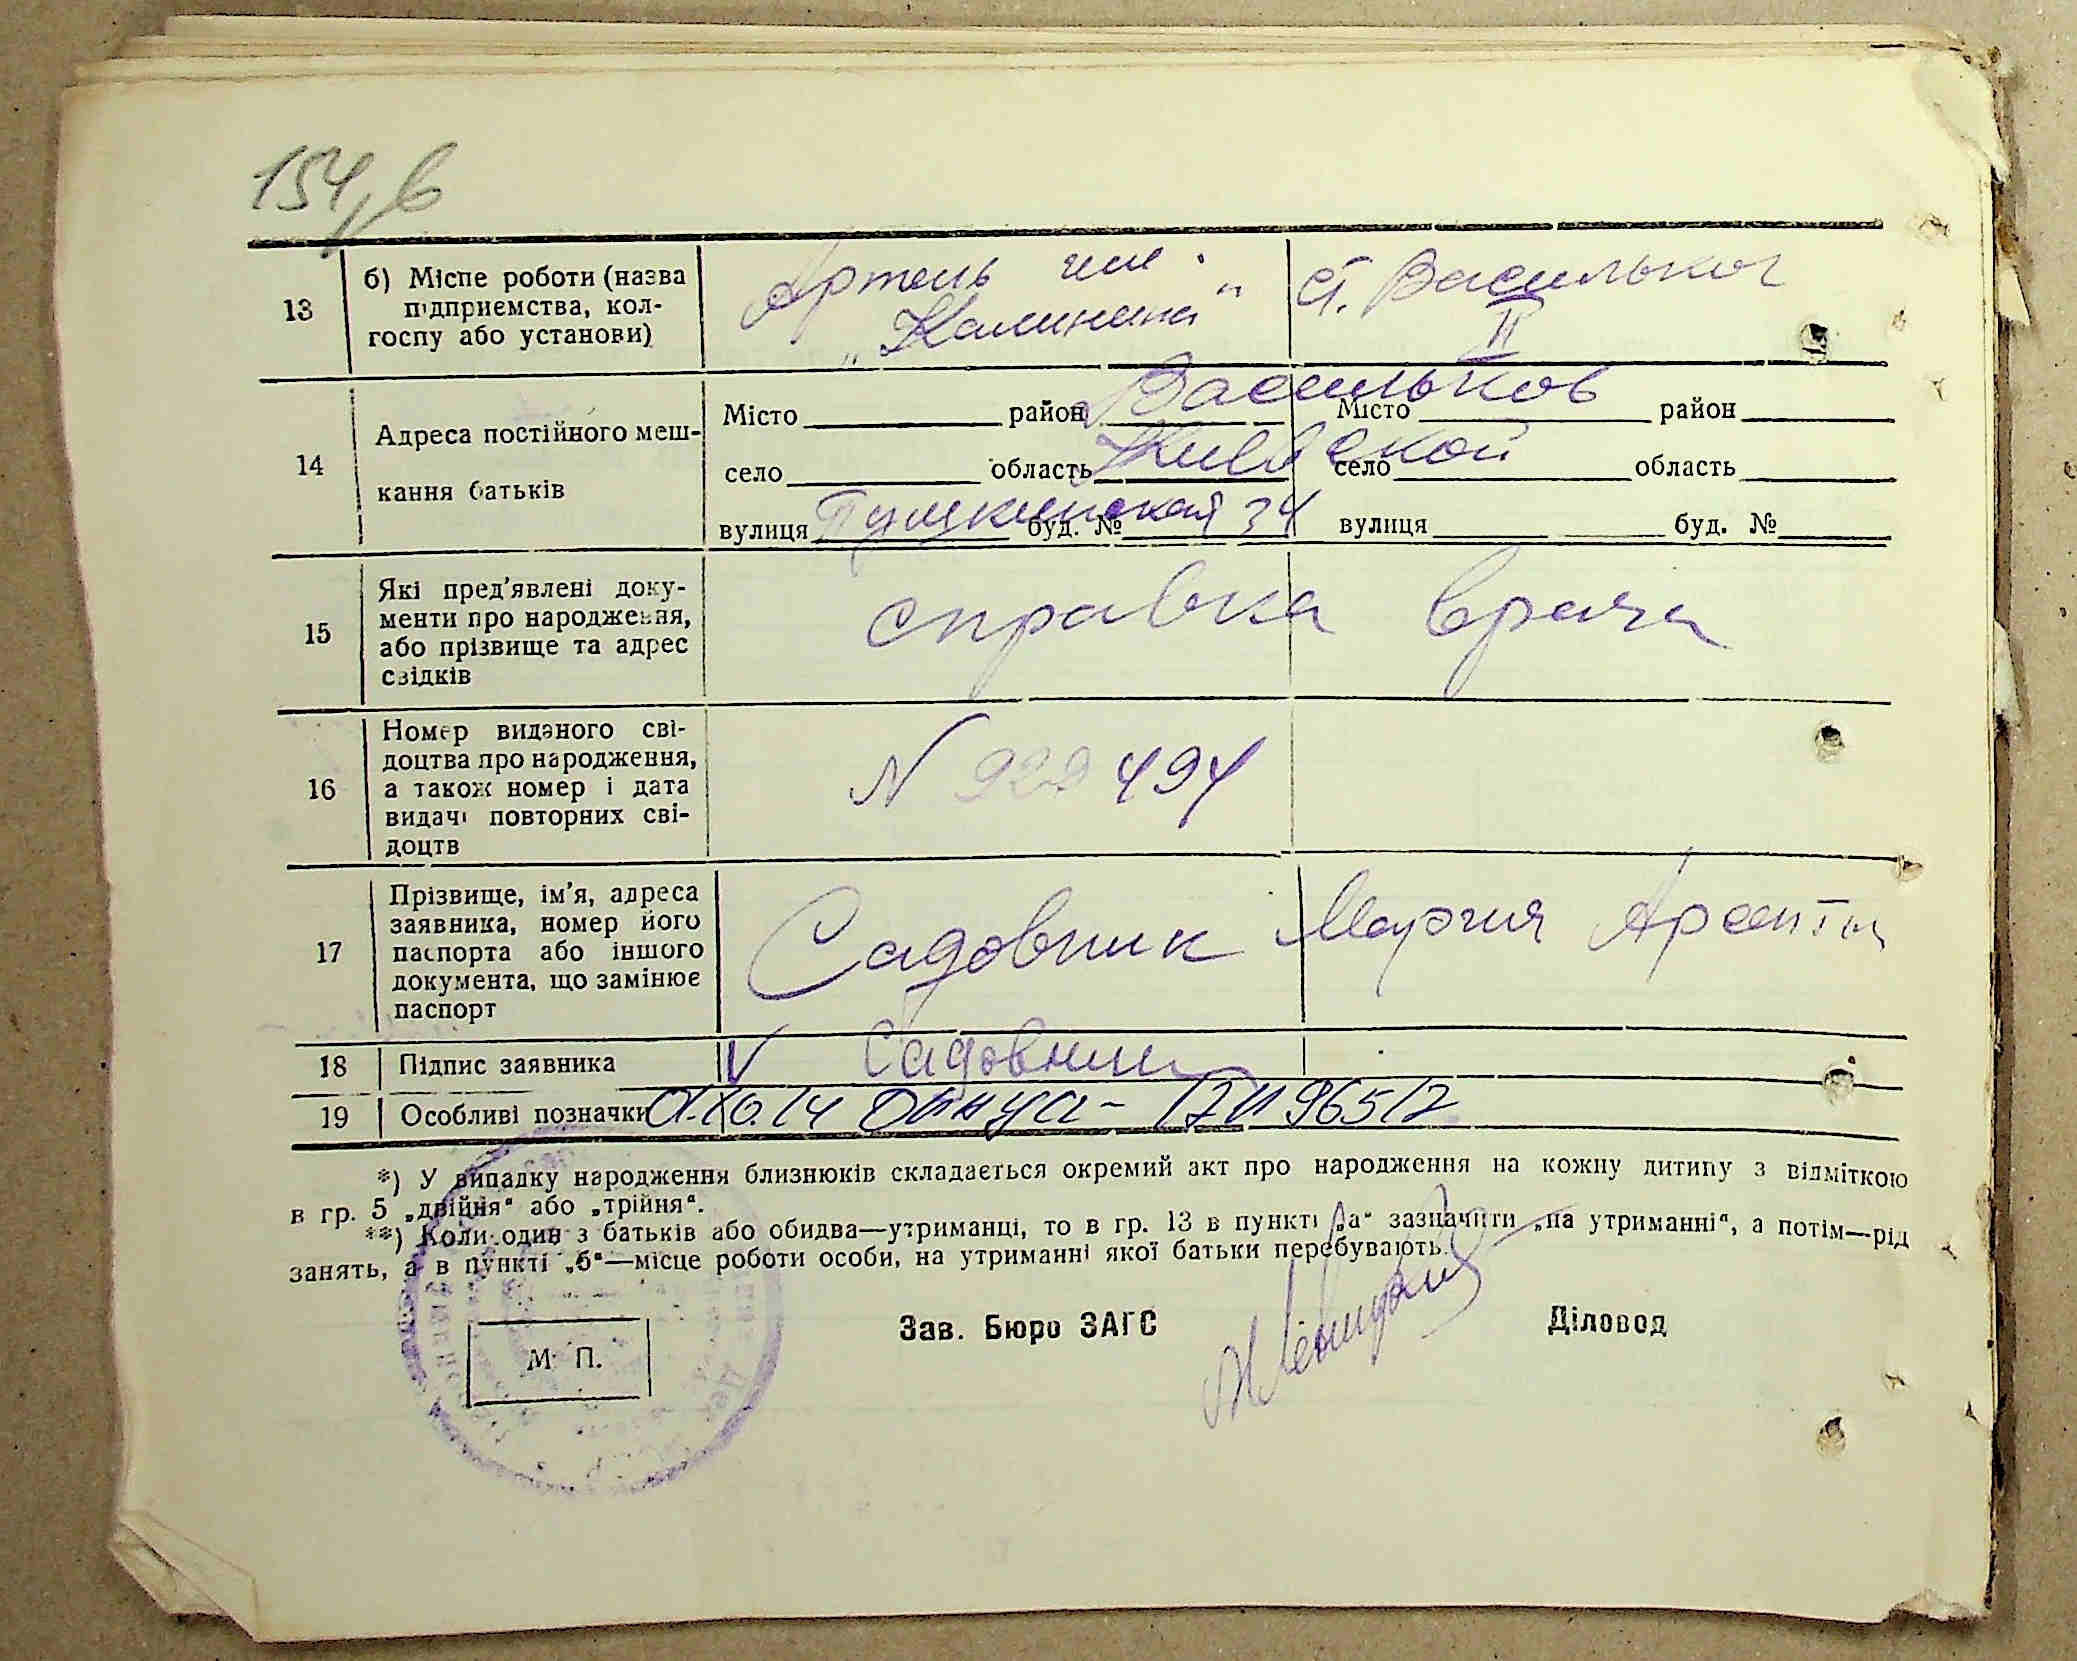 154, в
13
б) Місце роботи (назва
підприємства, кол-
госпу або установи)
Артель им.
„Калинина“
ст. Васильков
II
14
Адреса постійного меш-
кання батьків
Місто район Васильков Місто район
село область Киевской село область
вулиця Пушкинская 34 буд. № вулиця буд. №
15
Які пред'явлені доку-
менти про народження,
або прізвище та адрес
свідків
справка врача
16
Номер виданого сві-
доцтва про народження,
а також номер і дата
видачі повторних сві-
доцтв
N 929494
17
Прізвище, ім'я, адреса
заявника, номер його
паспорта або іншого
документа, що замінює
паспорт
Садовник Мария
18 Підпис заявника V Садовник
19 Особливі позначки
*) У випадку народження близнюків складається окремий акт про народження на кожну дитину з відміткою
в гр. 5 „двійня“ або „трійня“.
**) Коли один з батьків або обидва—утриманці, то в гр. 13 в пункті „а“ зазначити „на утриманні“, а потім—рід
занять, а в пункті „б“—місце роботи особи, на утриманні якої батьки перебувають.
Зав. Бюро ЗАГС Діловод
М. П.